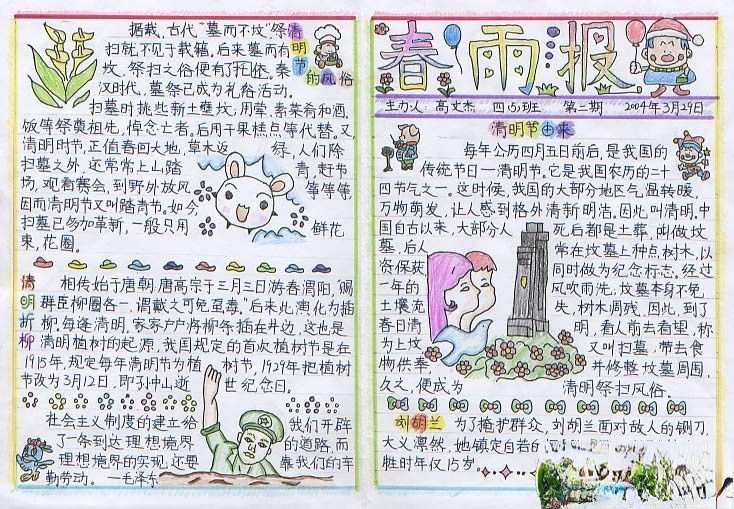 据载,古代"墓而不坟",祭
扫就不见于载籍,后来墓而有
坟,祭扫之俗便有了托依,秦
汉时代,墓祭已成为礼俗活动。
清明节的风俗
扫墓时挑些新土壅坟;用荤、素菜肴和酒、
饭等祭奠祖先,悼念亡者。后用干果糕点等代替。又
清明时节,正值春回大地,草木返 绿,人们除
扫墓之外,还常常上山踏 青,赶节
场,观看赛会,到野外放风 筝等等,
因而清明节又叫踏青节。如今,
扫墓已多加革新,一般只用 鲜花
束,花圈。
清明折柳
相传始于唐朝。唐高宗于三月三日游春渭阳,"赐
群臣柳圈各一,谓戴之可免虿毒。"后来此演化为插
柳,每逢清明,家家户户将柳条插在井边,这也是
清明植树的起源,我国规定的首次植树节是在
1915年,规定每年清明节为植 树节,1929年把植树
节改为3月12日,即孙中山逝 世纪念日。
社会主义制度的建立给 我们开辟
了一条到达理想境界 的道路,而
理想境界的实现,还要 靠我们的辛
勤劳动。 —毛泽东
春雨报
主办人:高文杰 四(5)班 第二期 2009年3月29日
清明节由来
每年公历四月五日前后,是我国的
传统节日—清明节。它是我国农历的二十
四节气之一。这时候,我国的大部分地区气温转暖,
万物萌发,让人感到格外清新明洁。因此叫清明。中
国自古以来,大部分人 死后都是土葬,叫做坟
墓,后人 常在坟墓上种点树木,以
资保获 同时做为纪念标志。经过
一年的 风吹雨洗,坟墓本身不免
土壤流 失,树木凋残,因此,到了
春日清 明,看人前去看望,称
为上坟 又叫扫墓,带去食
物供奉 并修整坟墓周围,
久之,便成为 清明祭扫风俗。
刘胡兰
为了掩护群众,刘胡兰面对敌人的铡刀,
大义凛然,她镇定自若的
胜时年仅15岁